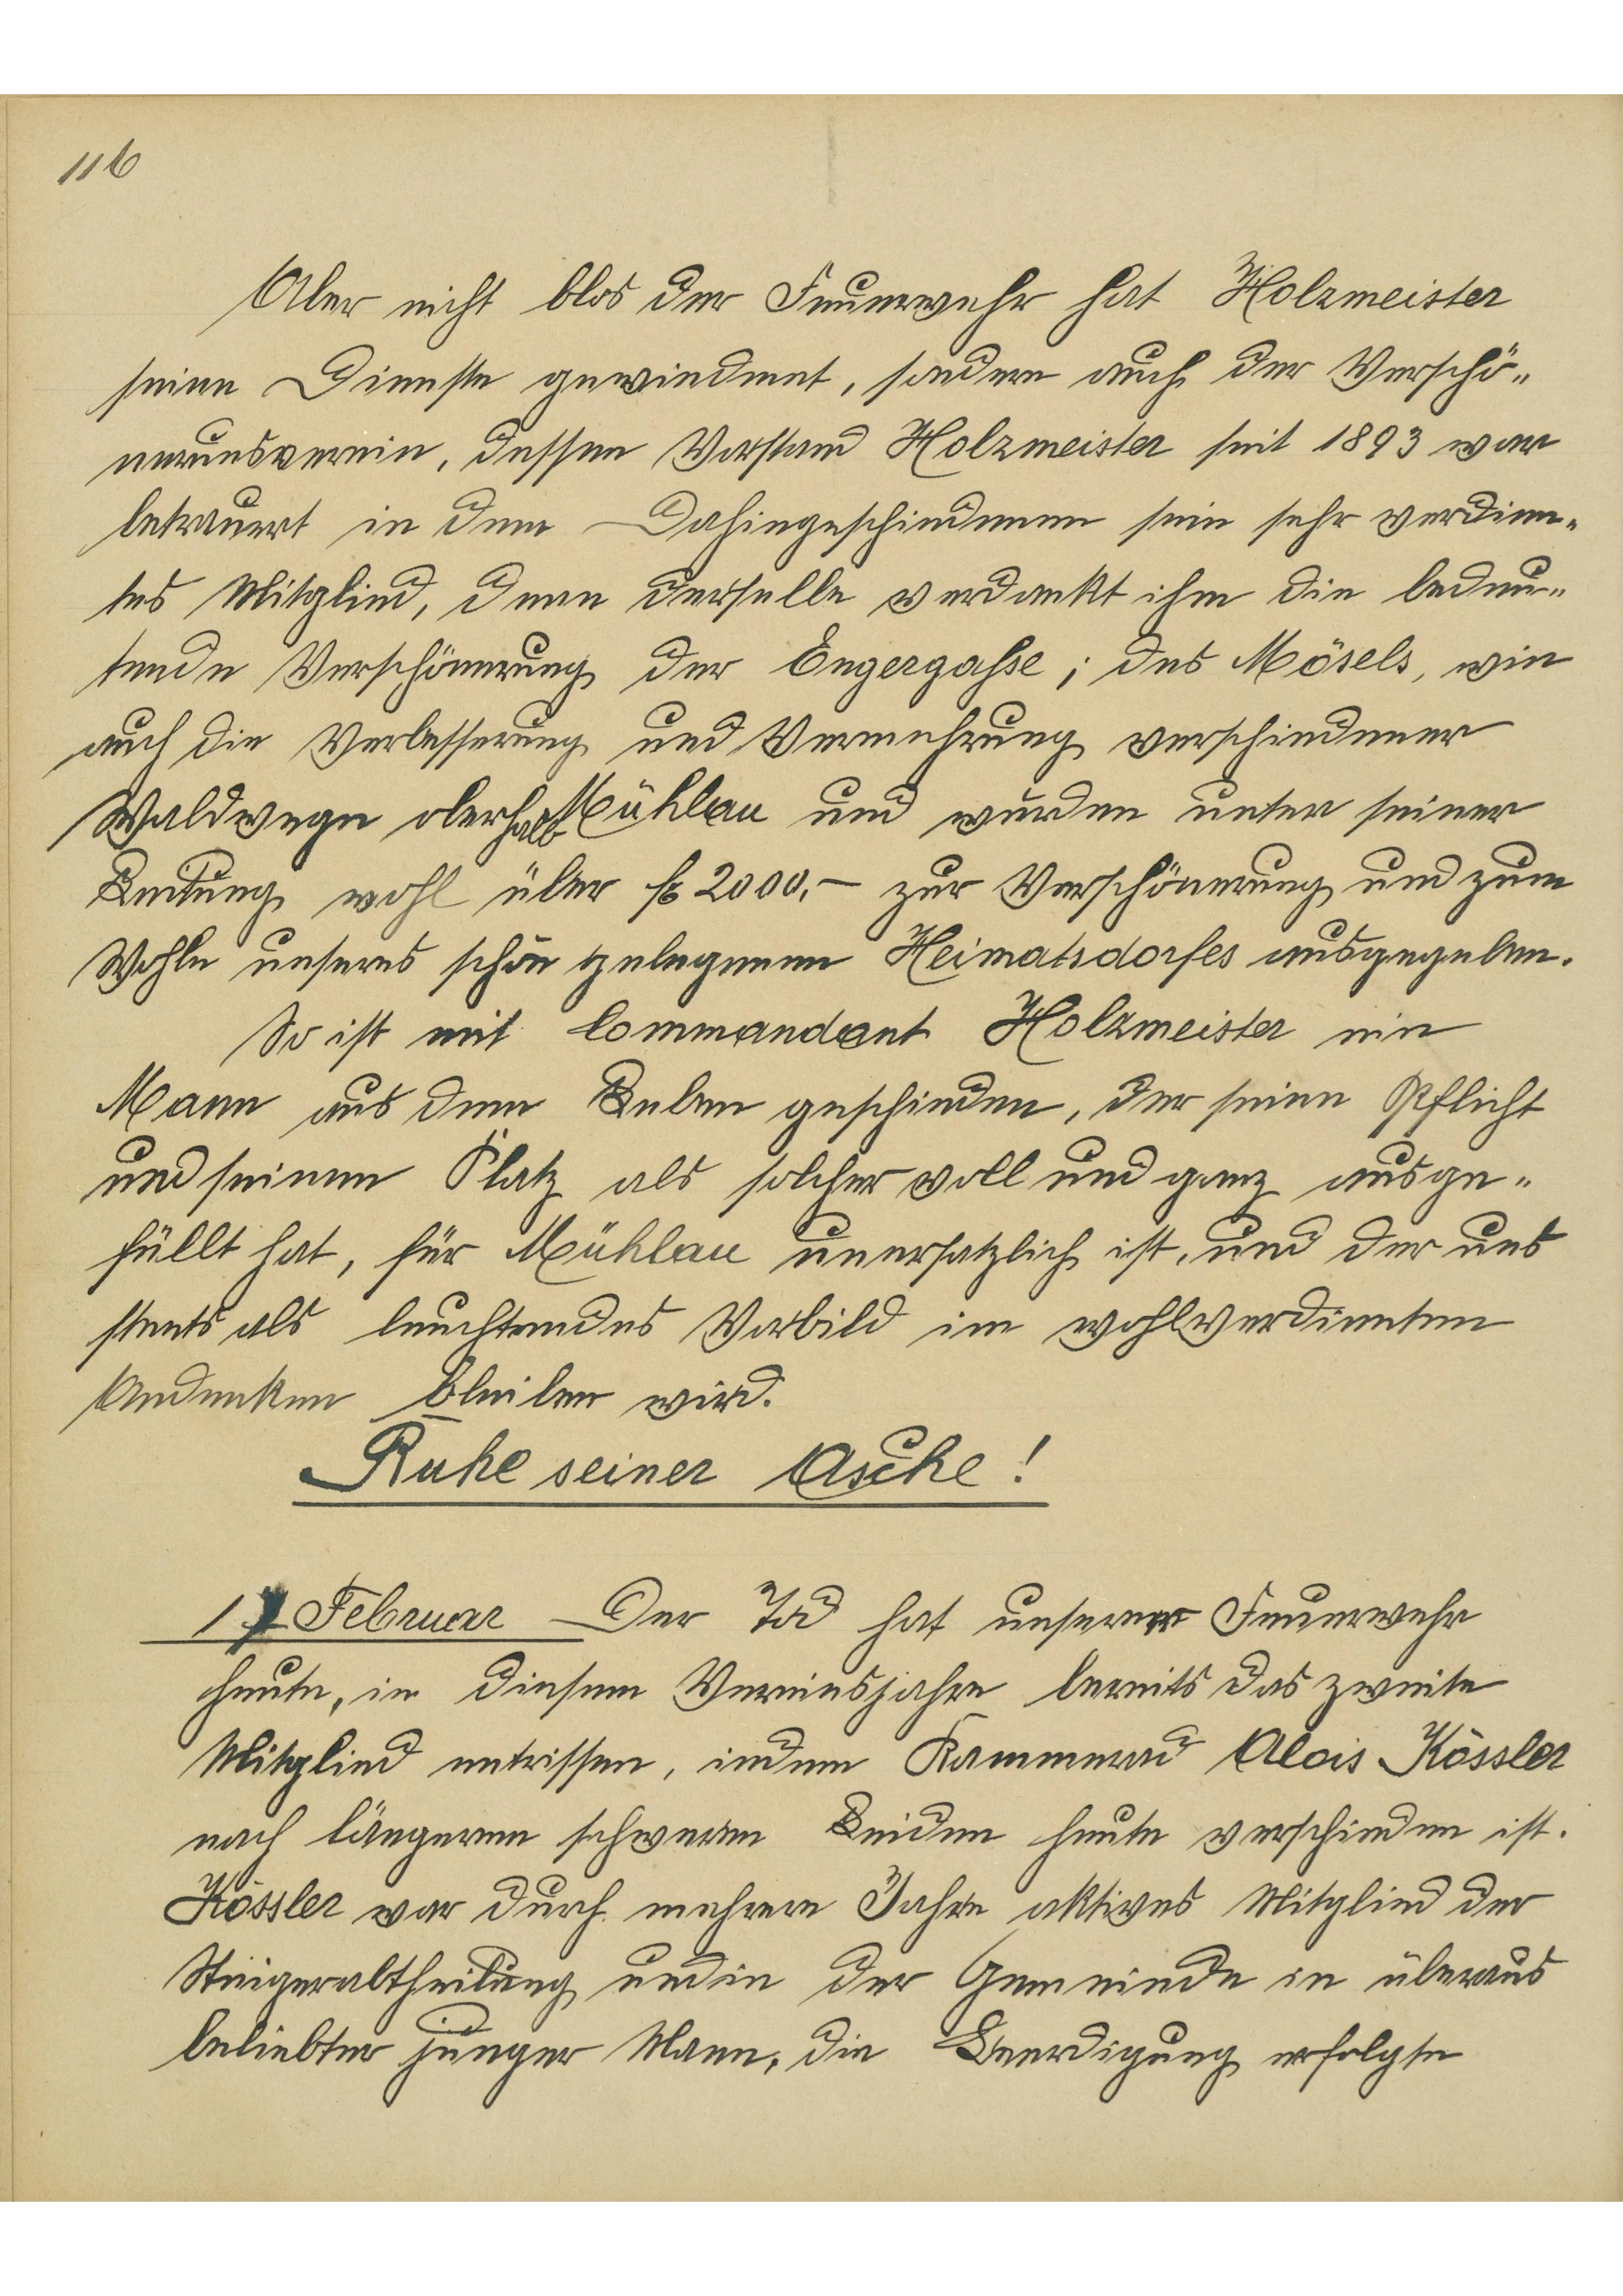 116
Aber nicht blos der Feuerwehr hat Holzmeister
seine Dienste gewiedmet, sondern auch der Verschö-
nerunsverein, dessen Vorstand Holzmeister seit 1893 war
betrauert in dem Dahingeschiedenen sein sehr verdien-
tes Mitglied, denn derselbe verdankt ihm die bedeu-
tende Verschönerung der Engergasse; des Mösels, wie
auch die Verbesserung und Vermehrung verschiedener
Waldwege oberhalb Mühlau und wurden unter seiner
Leitung wohl über fl 2000.- zur Verschönerung und zum
Wohle unseres schön gelegenen Heimatsdorfes ausgegeben.
So ist mit Commandant Holzmeister ein
Mann aus dem Leben geschieden, der seine Pflicht
und seinen Platz als solcher voll und ganz ausge-
füllt hat, für Mühlau unersatzlich ist, und der uns
steets als leuchtendes Vorbild im wohlverdienten
Andenken bleiben wird.
Ruhe seiner Asche!
17 Februar Der Tod hat unserer Feuerwehr
heute, in diesem Vereinsjahre bereits das zweite
Mitglied entrissen, indem Kammerad Alois Kössler
nach längerem schweren Leiden heute verschieden ist.
Kössler war durch mehrere Jahre aktives Mitglied der
Steigerabtheilung und in der Gemeinde in überaus
beliebter junger Mann, die Beerdigung erfolgte